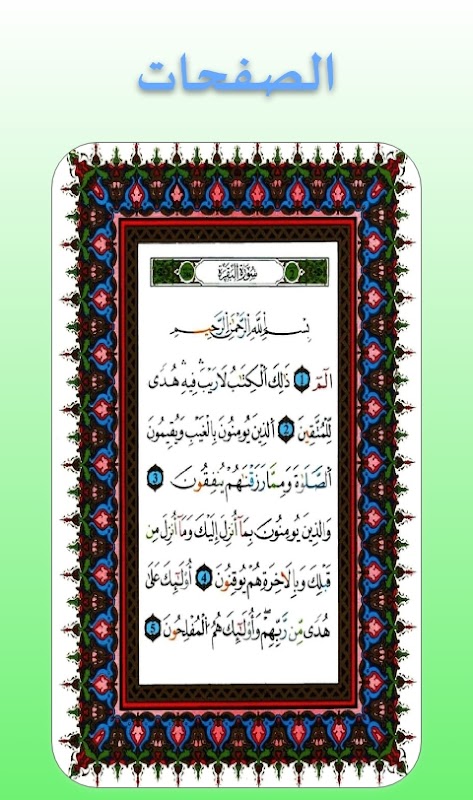 الصفحات
سُورَةُ الْبَقَرَةِ
بِسْمِ اللَّهِ الرَّحْمَٰنِ الرَّحِيمِ
الٓمٓ ١ ذَٰلِكَ الْكِتَٰبُ لَا رَيْبَ ۛ فِيهِ ۛ هُدًى
لِّلْمُتَّقِينَ ٢ الَّذِينَ يُؤْمِنُونَ بِالْغَيْبِ وَيُقِيمُونَ
الصَّلَوٰةَ وَمِمَّا رَزَقْنَٰهُمْ يُنفِقُونَ ٣
وَالَّذِينَ يُؤْمِنُونَ بِمَآ أُنزِلَ إِلَيْكَ وَمَآ أُنزِلَ مِن
قَبْلِكَ وَبِالْآخِرَةِ هُمْ يُوقِنُونَ ٤ أُوْلَٰٓئِكَ عَلَىٰ
هُدًى مِّن رَّبِّهِمْ ۖ وَأُوْلَٰٓئِكَ هُمُ الْمُفْلِحُونَ ٥